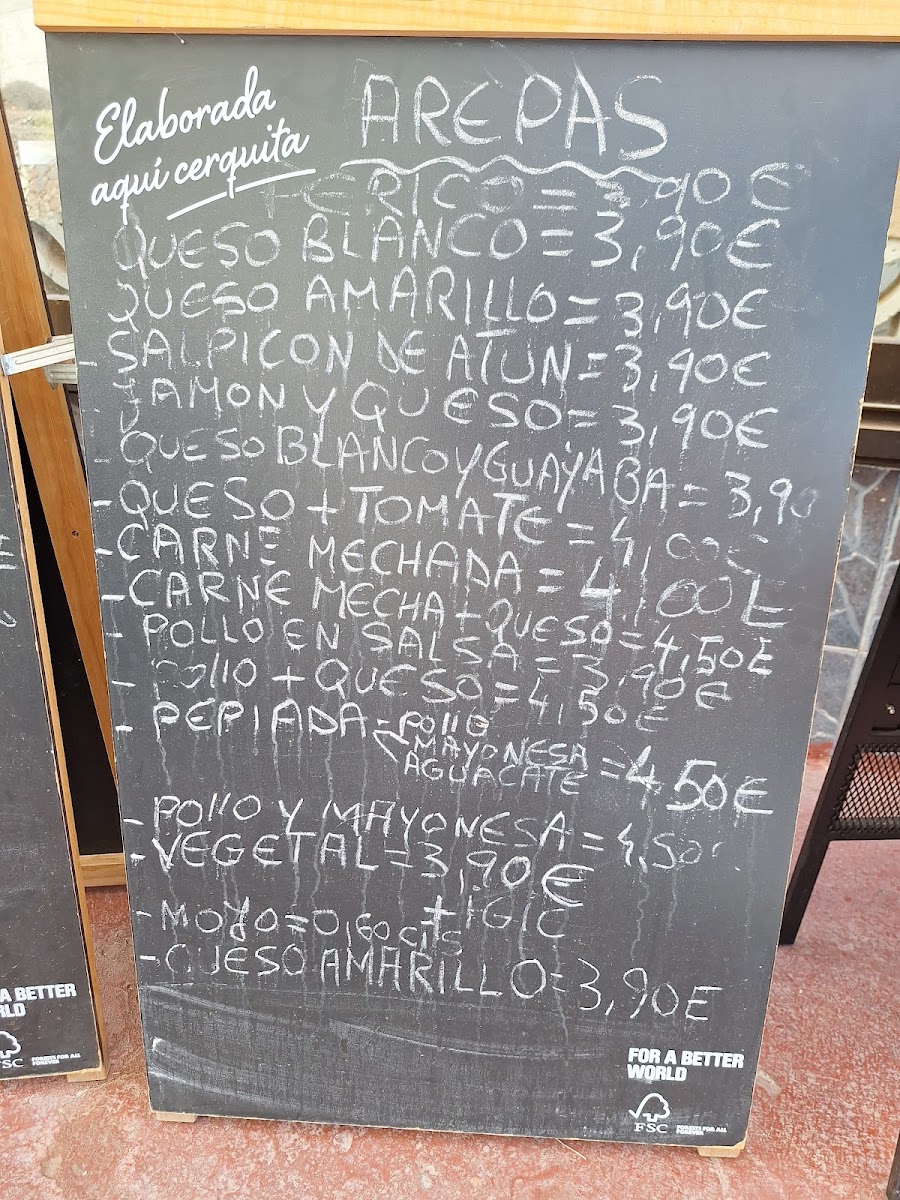 Elaborada
aquí cerquita
AREPAS
PERICO = 3,90 €
QUESO BLANCO = 3,90€
QUESO AMARILLO = 3,90€
- SALPICON DE ATUN = 3,90€
- JAMON Y QUESO = 3,90€
- QUESO BLANCO Y GUAYABA = 3,90
- QUESO + TOMATE = 4,00€
- CARNE MECHADA = 4,00€
- CARNE MECHA + QUESO = 4,50€
- POLLO EN SALSA = 3,90€
- POLLO + QUESO = 4,50€
- PEPIADA - POLLO
MAYONESA
AGUACATE = 4,50€
- POLLO Y MAYONESA = 4,50
- VEGETAL = 3,90€
- MOJO = 0,60 cts + IGIC
- QUESO AMARILLO = 3,90€
FOR A BETTER
WORLD
FSC
FORESTS FOR ALL
FOREVER
A BETTER
RLD
FSC
FORESTS FOR ALL
FOREVER